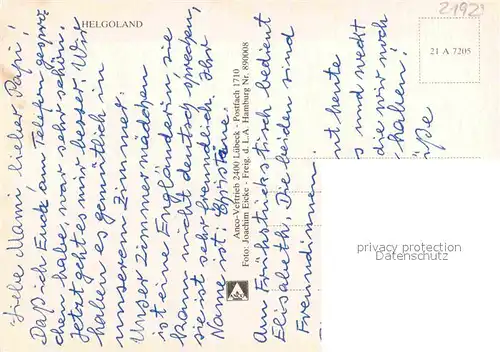 HELGOLAND
Liebe Mami, lieber Papi!
Daß ich Euch am Telefon gespro
chen habe, war sehr schön.
Jetzt geht es mir besser. Wir
haben es gemütlich in
unserem Zimmer.
Unser Zimmermädchen
ist eine Engländerin, sie
kann nicht deutsch sprechen,
sie ist sehr freundlich. Ihr
Name ist:
Anco-Vertrieb 2400 Lübeck - Postfach 1710
Foto: Joachim Eicke - Freig. d. L.A. Hamburg Nr. 890008
Am Frühstückstisch bedient
Elisabeth. Die beiden sind
Freundinnen!
heute
und weckt
die wir noch
haben!
üße
21 A 7205
2192
privacy protection
www.ansichtskarten-lexikon.de